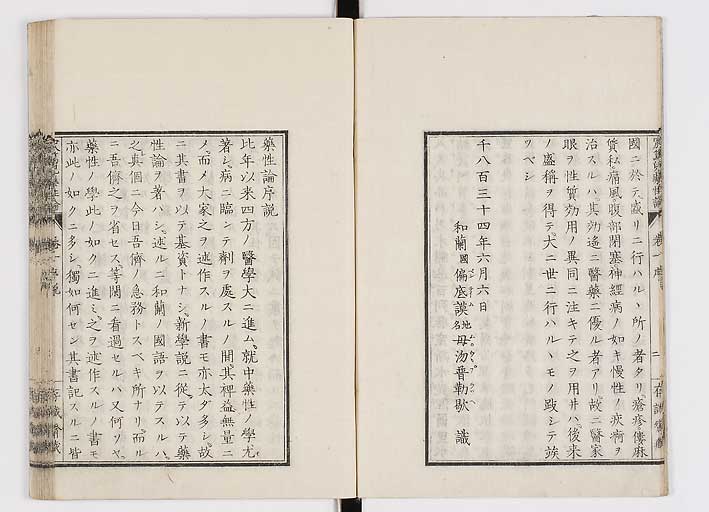 國ニ於テ盛リニ行ハルヽ所ノ者タリ瘡疹僂麻
質私痛風腹部閉塞神經病ノ如キ慢性ノ疾病ヲ
治スルハ其効遙ニ醫藥ニ優ル者アリ故ニ醫家
眼ヲ性質効用ノ異同ニ注キテ之ヲ用井ハ後来
ノ盛稱ヲ得テ大ニ世ニ行ハルヽモノ改シテ竢
ヲベシ
千八百三十四年六月六日
和蘭國偏底謨地名毋汤晋勒歇 識
藥性論序説
比年以来四方ノ醫學大ニ進ム就中藥性ノ學尤
著シ病ニ臨シテ劑ヲ處スルノ間其裨益無量ニ
ノ而メ大家之ヲ述作スルノ書モ亦太タ多シ故
ニ其書ヲ以テ基資トナシ新學説ニ從テ以テ藥
性論ヲ著ハシ述ルニ和蘭ノ國語ヲ以テスルハ
之眞個ニ今日吾儕ノ急務トスベキ所ナリ而ル
ニ吾儕之ヲ省セス等閑ニ看過セルハ又何ソヤ
藥性ノ學此ノ如クニ進ミ之ヲ述作スルノ書モ
亦此ノ如クニ多シ獨如何セン其書記スルニ皆